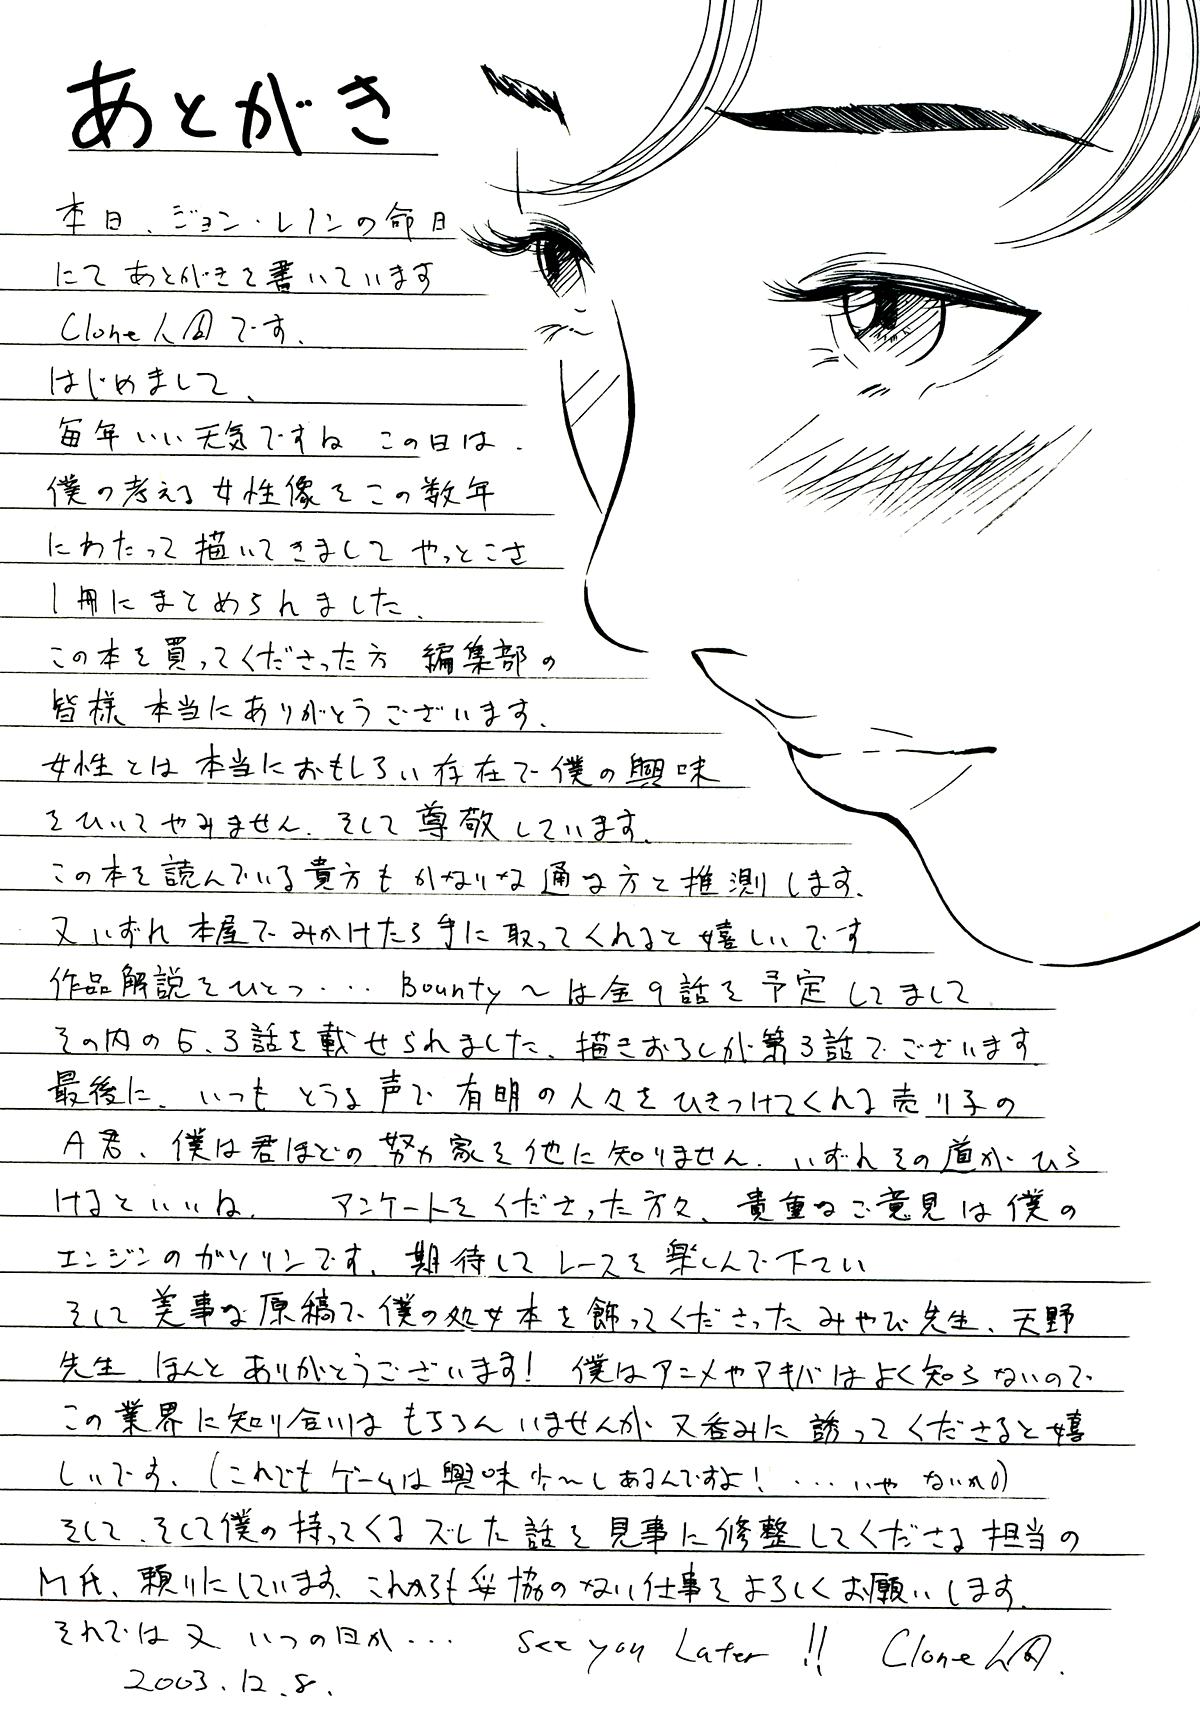 あとがき
本日、ジョン・レノンの命日
にて あとがきを書いています
Clone人間です。
はじめまして、
毎年いい天気ですね この日は、
僕の考える女性像をこの数年
にわたって描いてきまして やっとこさ
1冊にまとめられました、
この本を買ってくださった方 編集部の
皆様、本当にありがとうございます、
女性とは本当におもしろい存在で僕の興味
をひいてやみません、そして尊敬しています、
この本を読んでいる貴方もかなりな通な方と推測します、
又いずれ本屋でみかけたら手に取ってくれると嬉しいです
作品解説をひとつ・・・Bounty～は全9話を予定してまして
その内の5、3話を載せられました、描きおろしが第3話でございます
最後に、いつもとうる声で有明の人々をひきつけてくれる売り子の
A君、僕は君ほどの努力家を他に知りません、いずれその道がひら
けるといいね、 アンケートをくださった方々、貴重なご意見は僕の
エンジンのガソリンです、期待してレースを楽しんで下てい
そして美事な原稿で僕の処女本を飾ってくださったみやび先生、天野
先生、ほんとありがとうございます! 僕はアニメやアキバはよく知らないので
この業界に知り合いはもちろんいませんが又呑みに誘ってくださると嬉
しいです、(これでもゲームは興味少〜しあるんですよ!・・・いや ないかの)
そして、そして僕の持ってくるズレた話を見事に修整してくださる担当の
M氏、頼りにしています、これからも妥協のない仕事をよろしくお願いします、
それでは又 いつの日か・・・ See you Later!! Clone人間.
2003.12.8.